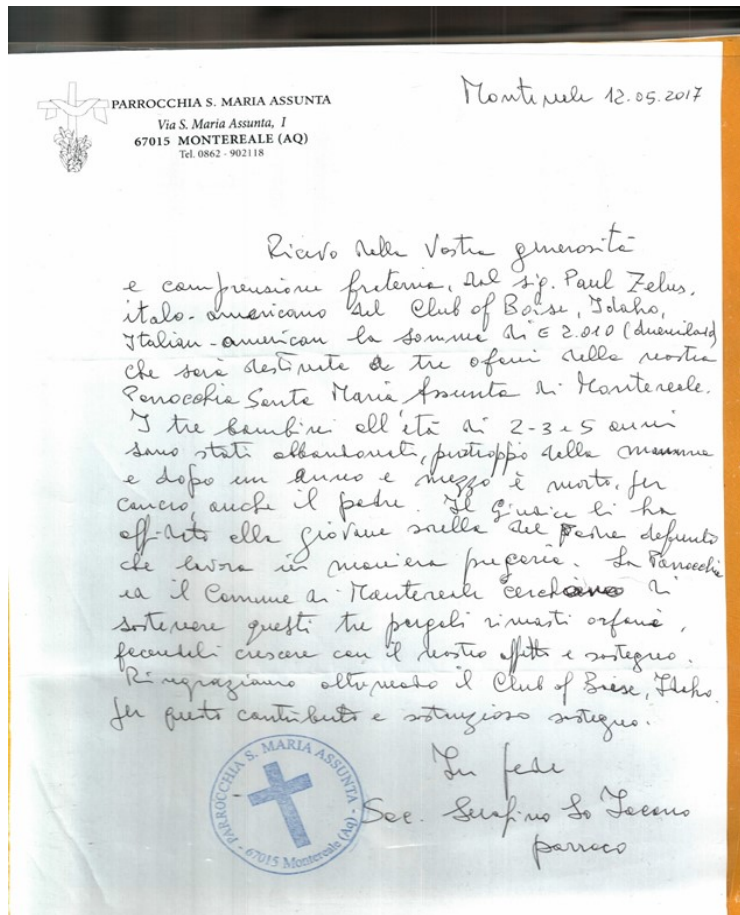 PARROCCHIA S. MARIA ASSUNTA
Via S. Maria Assunta, 1
67015 MONTEREALE (AQ)
Tel. 0862 - 902118
Montereale 12.05.2017
Ricevo dalla Vostra generosità
e comprensione fraterna, dal sig. Paul Zelus,
italo-americano del Club of Boise, Idaho,
Italian-american la somma di € 2.010
che sarà destinata a tre ofani della nostra
Parrocchia Santa Maria Assunta di Montereale.
I tre bambini all'età di 2-3 e 5 anni
sono stati abbandonati, purtroppo dalla mamma
e dopo un anno e mezzo è morto, per
cancro, anche il padre. Il Giudice li ha
affidato alla giovane sorella del padre defunto
che lavora in maniera precaria. La Parrocchia
ed il Comune di Montereale cercano di
sostenere questi tre pargoli rimasti orfani,
facendoli crescere con il nostro affetto e sostegno.
Ringraziamo oltremodo il Club of Boise, Idaho.
per questo contributo e sostanzioso sostegno.
In fede
Sac. Serafino Lo Iacono
parroco
PARROCCHIA S. MARIA ASSUNTA
- 67015 Montereale (Aq) -